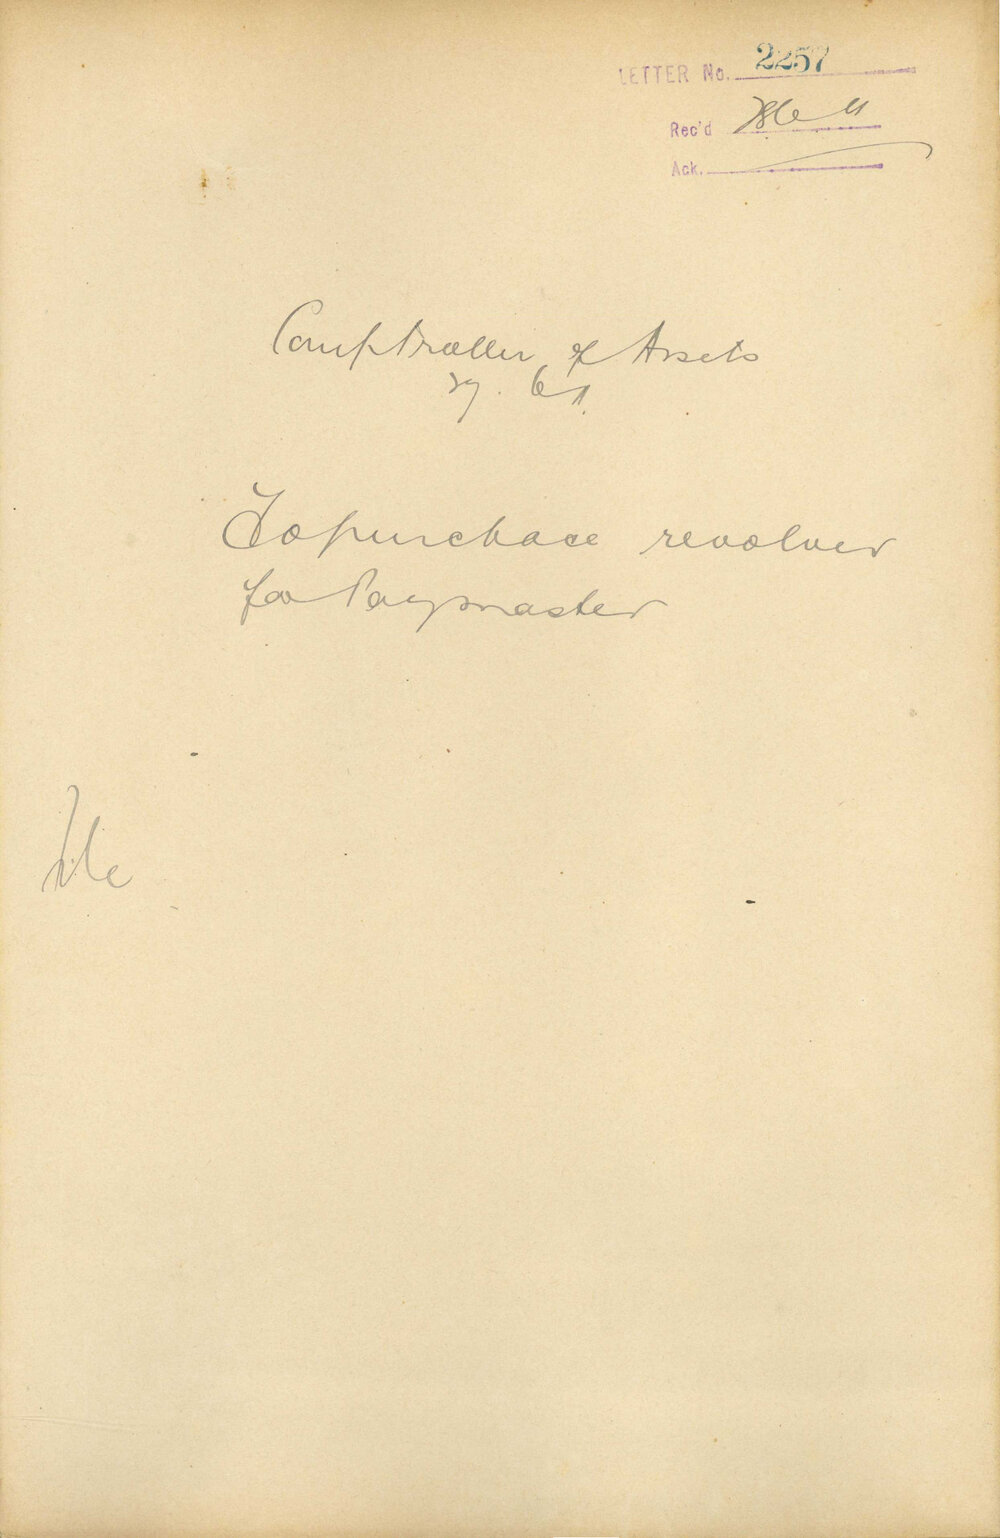 LETTER No. 2257
Rec'd
Ack.
Comptroller of Assets
27. 6 11.
To purchase revolver
for Paymaster
File